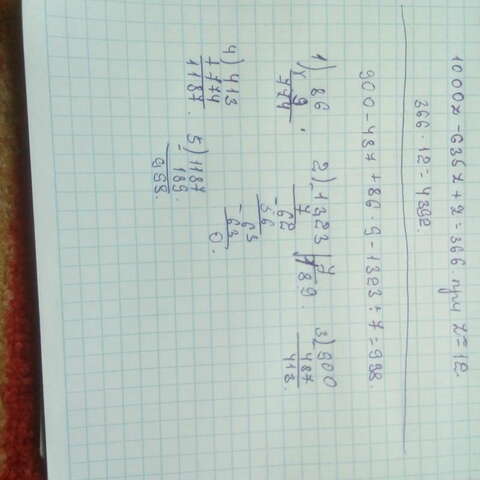 1000x - 636x + 2 = 366. при x = 12.
366 · 12 = 4392.
900 - 487 + 86 · 9 - 1323 ÷ 7 = 998.
1) 86
x 9
774
2) 1323 | 7
- 7 189.
- 62
56
- 63
63
0.
3) 900
487
413.
4) 413
+ 774
1187.
5) 1187
- 189.
998.